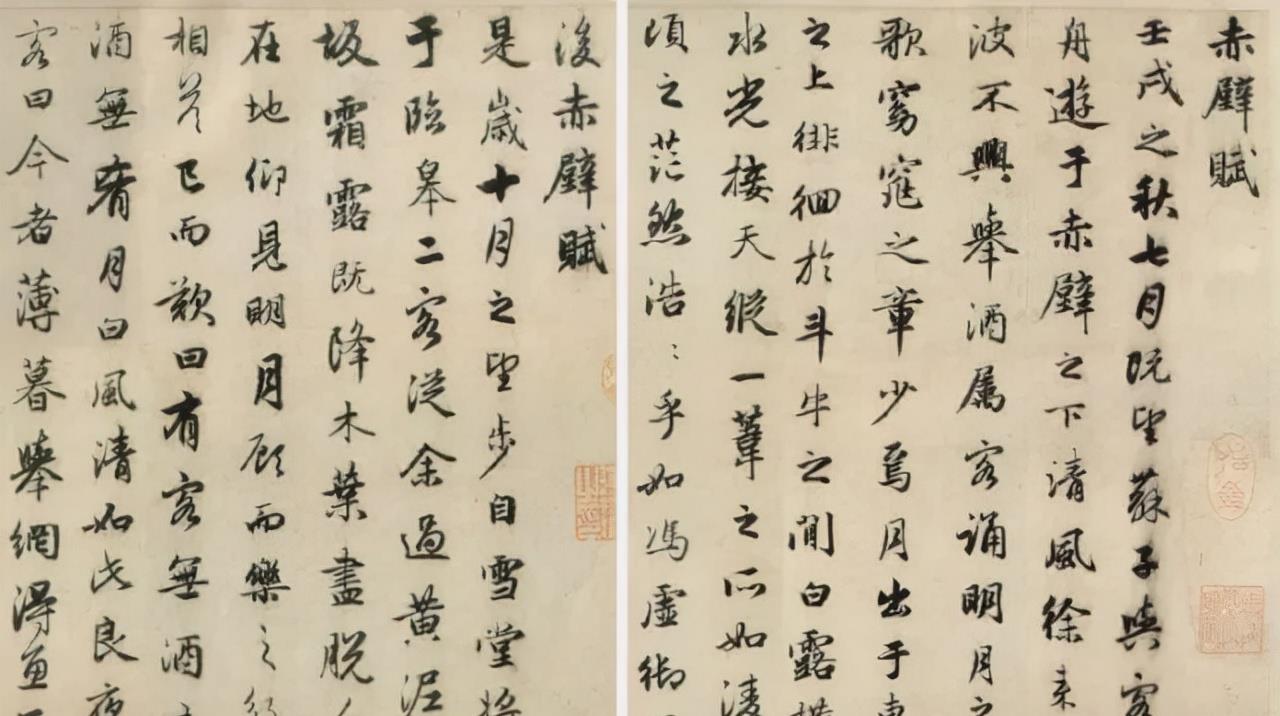 赤壁賦
壬戌之秋七月既望蘇子與客
舟遊于赤壁之下清風徐来
波不興舉酒属客誦明月之
歌窈窕之章少焉月出于東
之上徘徊於斗牛之間白露横
水光接天縱一葦之所如淩
頃之茫然浩〻乎如馮虛御
後赤壁賦
是歲十月之望步自雪堂將
于臨皋二客從余過黄泥
坂霜露既降木葉盡脱
在地仰見明月顧而樂之行
相答已而歎曰有客無酒
酒無肴月白風清如此良夜
客曰今者薄暮舉網得魚